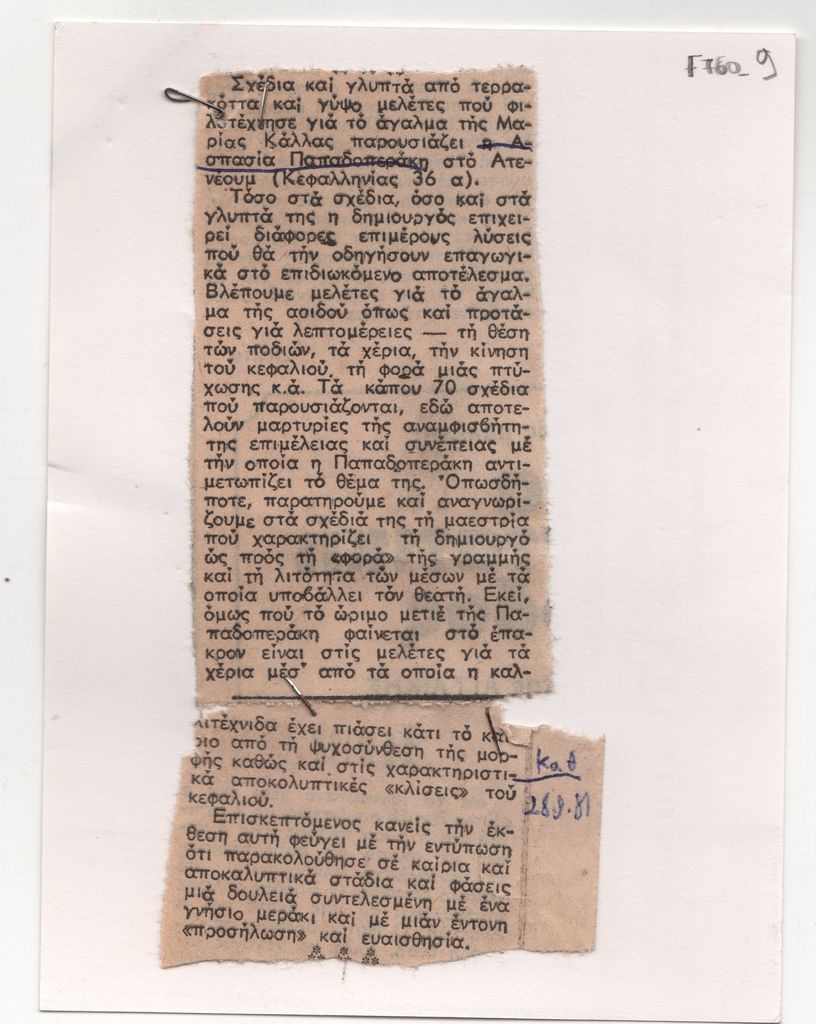 F760_9
Σχέδια καί γλυπτά από τερρα-
κόττα καί γύψο μελέτες πού φι-
λοτέχνησε γιά τό άγαλμα τής Μα-
ρίας Κάλλας παρουσιάζει η Α-
σπασία Παπαδοπεράκη στό Ατε-
νέουμ (Κεφαλληνίας 36 α).
Τόσο στά σχέδια, όσο καί στά
γλυπτά της η δημιουργός επιχει-
ρεί διάφορες επιμέρους λύσεις
πού θά τήν οδηγήσουν επαγωγι-
κά στό επιδιωκόμενο αποτέλεσμα.
Βλέπουμε μελέτες γιά τό άγαλ-
μα τής αοιδού όπως καί προτά-
σεις γιά λεπτομέρειες — τή θέση
τών ποδιών, τά χέρια, τήν κίνηση
τού κεφαλιού, τή φορά μιάς πτύ-
χωσης κ.ά. Τά κάπου 70 σχέδια
πού παρουσιάζονται, εδώ αποτε-
λούν μαρτυρίες τής αναμφισβήτη-
της επιμέλειας καί συνέπειας μέ
τήν οποία η Παπαδοπεράκη αντι-
μετωπίζει τό θέμα της. Όπωσδή-
ποτε, παρατηρούμε καί αναγνωρί-
ζουμε στά σχέδιά της τή μαεστρία
πού χαρακτηρίζει τή δημιουργό
ώς πρός τή «φορά» τής γραμμής
καί τή λιτότητα τών μέσων μέ τά
οποία υποβάλλει τόν θεατή. Εκεί,
όμως πού τό ώριμο μετιέ τής Πα-
παδοπεράκη φαίνεται στό έπα-
κρον είναι στίς μελέτες γιά τά
χέρια μέσ' από τά οποία η καλ-
λιτέχνιδα έχει πιάσει κάτι τό καί
ριο από τή ψυχοσύνθεση τής μορ-
φής καθώς καί στίς χαρακτηριστι-
κά αποκολυπτικές «κλίσεις» τού
κεφαλιού.
Επισκεπτόμενος κανείς τήν έκ-
θεση αυτή φεύγει μέ τήν εντύπωση
ότι παρακολούθησε σέ καίρια καί
αποκαλυπτικά στάδια καί φάσεις
μιά δουλειά συντελεσμένη μέ ένα
γνήσιο μεράκι καί μέ μιάν έντονη
«προσήλωση» καί ευαισθησία.
Καθ